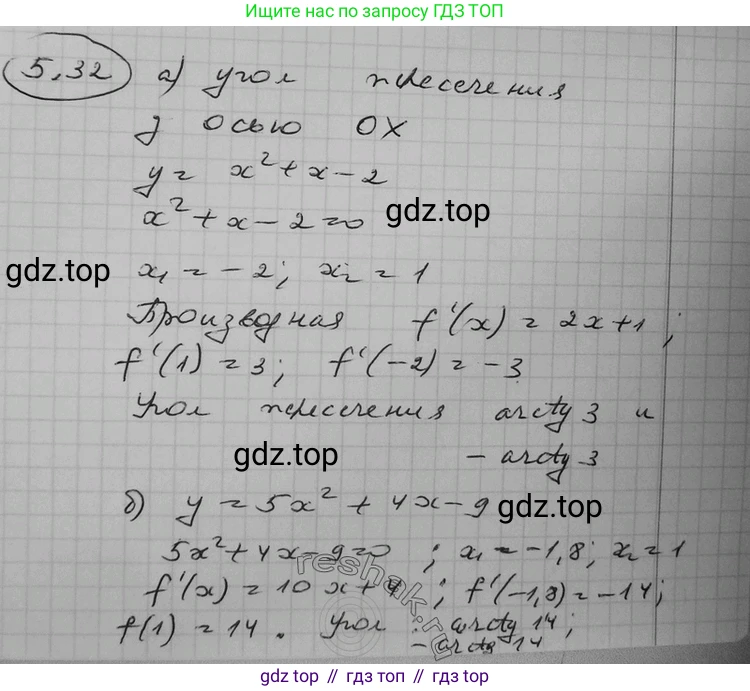 Ищите нас по запросу ГДЗ ТОП
5.32 а) угол пересечения
з осью OX
y = x² + x - 2
x² + x - 2 = 0
gdz.top
gdz.top
x₁ = -2; x₂ = 1
Производная f'(x) = 2x+1;
f'(1) = 3; f'(-2) = -3
Угол пересечения arctg 3 и
- arctg 3
gdz.top
б) y = 5x² + 4x - 9
gdz.top
5x² + 4x - 9 = 0; x₁ = -1,8; x₂ = 1
f'(x) = 10x + 4; f'(-1,8) = -14;
f(1) = 14. Угол: arctg 14;
- arctg 14
reshak.ru
gdz.top // gdz.top // gdz.top // gdz.top